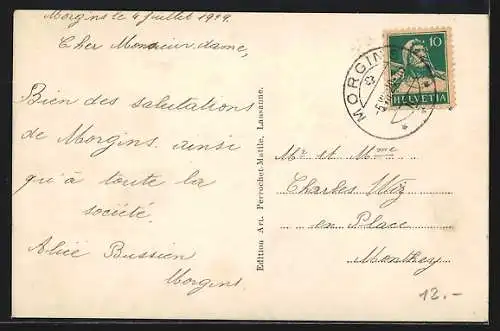 Morgins le 4 Juillet 1929.
Cher Monsieur, dame,
Bien des salutations
de Morgins. ainsi
qu'à toute la
société.
Alice Bussien
Morgins.
Edition Art. Perrochet-Matile, Lausanne.
MORGINS
10
HELVETIA
Mr et Mme
Charles Witz
en Place
Monthey
12.-